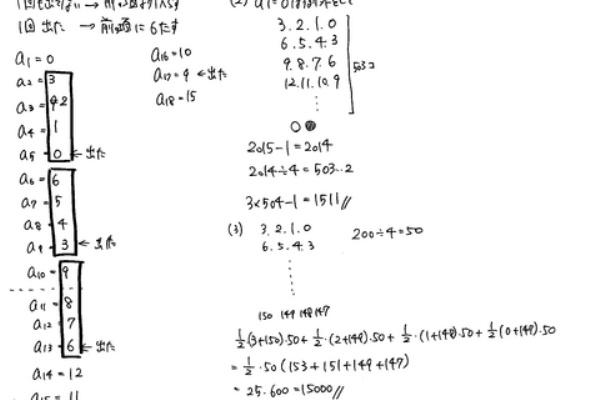 1回出た → 前の項に6たす
a₁ = 0
a₂ = 3
a₃ = 2
a₄ = 1
a₅ = 0 ← 出た
a₆ = 6
a₇ = 5
a₈ = 4
a₉ = 3 ← 出た
a₁₀ = 9
a₁₁ = 8
a₁₂ = 7
a₁₃ = 6 ← 出た
a₁₄ = 12
a₁₅ = 11
a₁₆ = 10
a₁₇ = 9 ← 出た
a₁₈ = 15
(2)
3. 2. 1. 0
6. 5. 4. 3
9. 8. 7. 6
12. 11. 10. 9
503コ
2015-1=2014
2014÷4=503...2
3×504-1=1511//
(3) 3. 2. 1. 0
6. 5. 4. 3
200÷4=50
150 149 148 147
1/2(3+150)・50+1/2・(2+149)・50+1/2・(1+148)・50+1/2(0+147)・50
=1/2・50(153+151+149+147)
=25・600=15000//